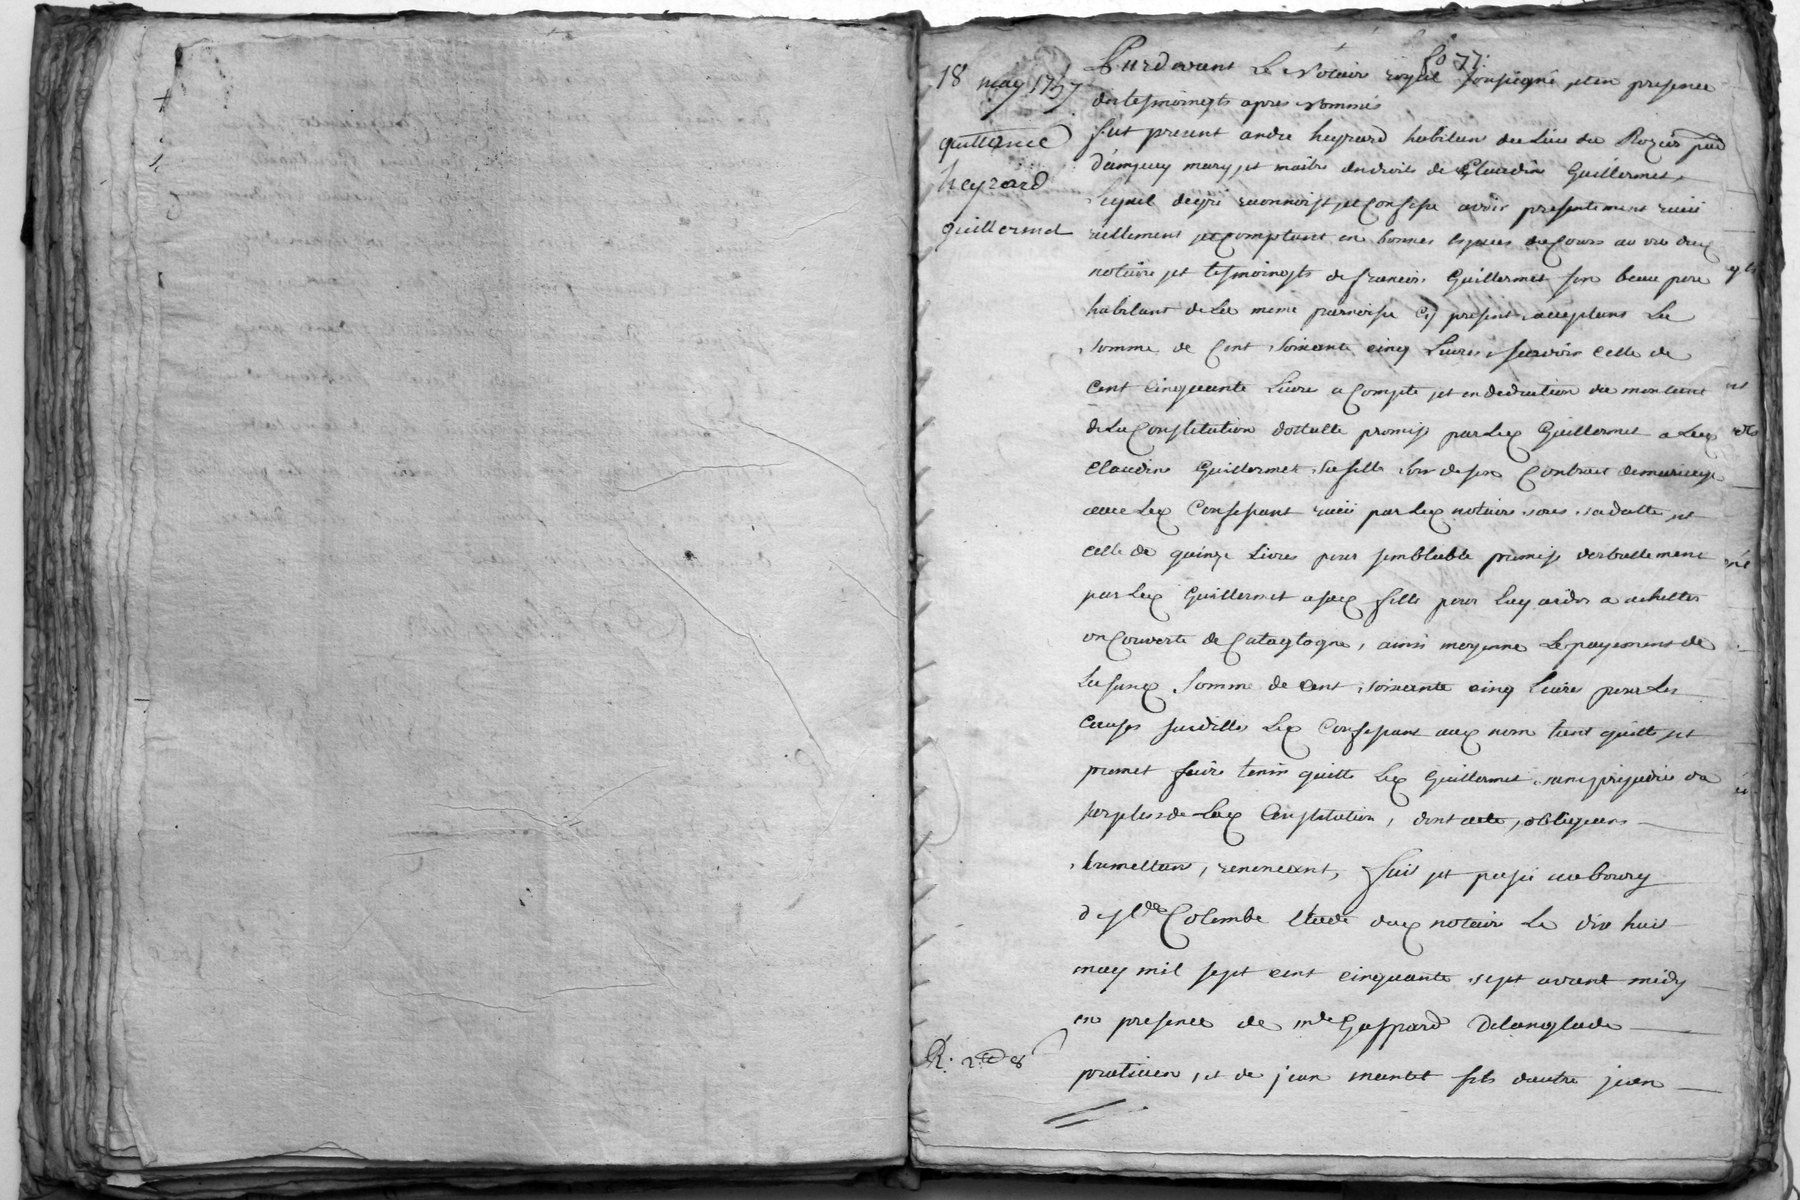 fo 77.
18 may 1757
quittance
heyrard
guillermet
Pardevant Le Notaire royal soussigné, et en presence
des tesmoingts apres nommés
fut present andre heyrard habitan du Lieu du Rozier
mary, et maitre des droits de Claudine Guillermet,
Lequel de gré reconnoist, et confesse avoir presentement receu
reellement et comptant en bonnes especes du Cours au veu dud
notaire et tesmoingts de francois Guillermet son beau pere
habitant de La meme parroisse Cy present acceptant La
somme de Cent soixante cinq Livres, scavoir celle de
cent cinquante Livre a Compte, et en deduction du montant
de La Constitution dottalle promise par Led Guillermet a Lad
Claudine Guillermet sa fille Lors de son Contrat de mariage
avec Led Confessant receu par Led notaire sous sa datte, et
celle de quinze Livres pour semblable promise verballement
par Led Guillermet a sad fille pour Luy aider a achetter
un Couverte de Catalogne, ainsi moyenne Le payement de
La susd somme de cent soixante cinq Livres pour Les
causes susdittes Led Confessant aud nom tient quitte, et
promet faire tenir quitte Led Guillermet, sans prejudice du
surplus de Lad Constitution, dont acte, obligeans
soumettans, renoncant, fait et passé au bourg
de Ste Colombe Etude dud notaire Le dix huit
may mil sept cent cinquante sept avant midy
en presence de me Gaspard Delanglade
praticien, et de jean mantet fils dautre jean